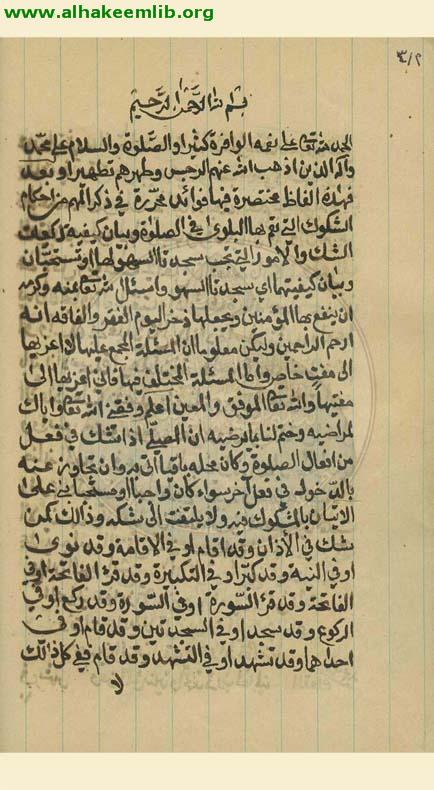 www.alhakeemlib.org
٣/٢
بسم الله الرحمن الرحيم
الحمد لله تعالى على نعمه الوافرة كثيرا والصلوة والسلام على محمد
وآله الذين اذهب الله عنهم الرجس وطهرهم تطهيرا وبعد
فهذه الفاظ مختصرة فيها فوائد محررة في ذكر المهم من احكام
الشكوك التي تعم بها البلوى في الصلوة وبيان كيفية ركعات
الشك والامور التي تجب سجدتا السهو لها او تستحبان
وبيان كيفيتهما اي سجدتا السهو واسئل الله تعالى بمنه وكرمه
ان ينفع بها المؤمنين ويجعلها ذخرا ليوم الفقر والفاقه انه
ارحم الراحمين وليكن معلوما ان المسئلة المجمع عليها لا اعزيها
الى مفت خاص واما المسئلة المختلف فيها فاني اعزيها الى
مفتيها والله تعالى الموفق والمعين اعلم وفقك الله تعالى واياك
لمراضيه وختم لنا بما يرضيه ان المصلي اذا شك في فعل
من افعال الصلوة وكان محله باقيا اتى به وان تجاوز عنه
بالدخول في فعل آخر سواء كان واجبا او مستحبا بنى على
الاتيان بالمشكوك فيه ولا يلتفت الى شكه وذالك كمن
شك في الأذان وقد اقام او في الاقامة وقد نوى
او في النية وقد كبر او في التكبيرة وقد قرء الفاتحة او في
الفاتحة وقد قرء السورة او في السورة وقد ركع او في
الركوع وقد سجد او في السجدتين وقد قام او في
احداهما وقد تشهد او في التشهد وقد قام ففي كل ذالك
لا